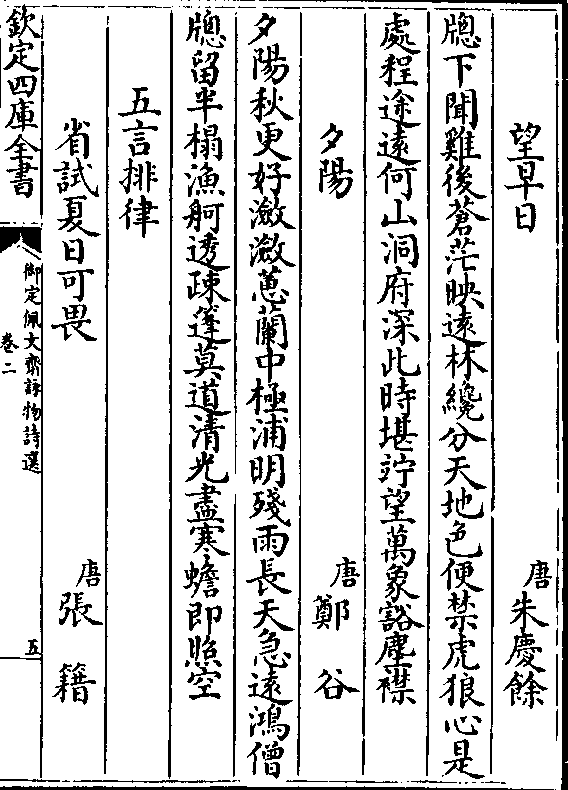 望早日 唐 朱慶餘
牕下聞雞後蒼茫映遠林纔分天地色便禁虎狼心是
處程途遠何山洞府深此時堪竚望萬象豁塵襟
夕陽 唐 鄭谷
夕陽秋更好瀲瀲蕙蘭中極浦明殘雨長天急遠鴻僧
牕留半榻漁舸透疎篷莫道清光盡寒蟾即照空
五言排律
省試夏日可畏 唐 張籍
欽定四庫全書
御定佩文齋詠物詩選
卷二
五